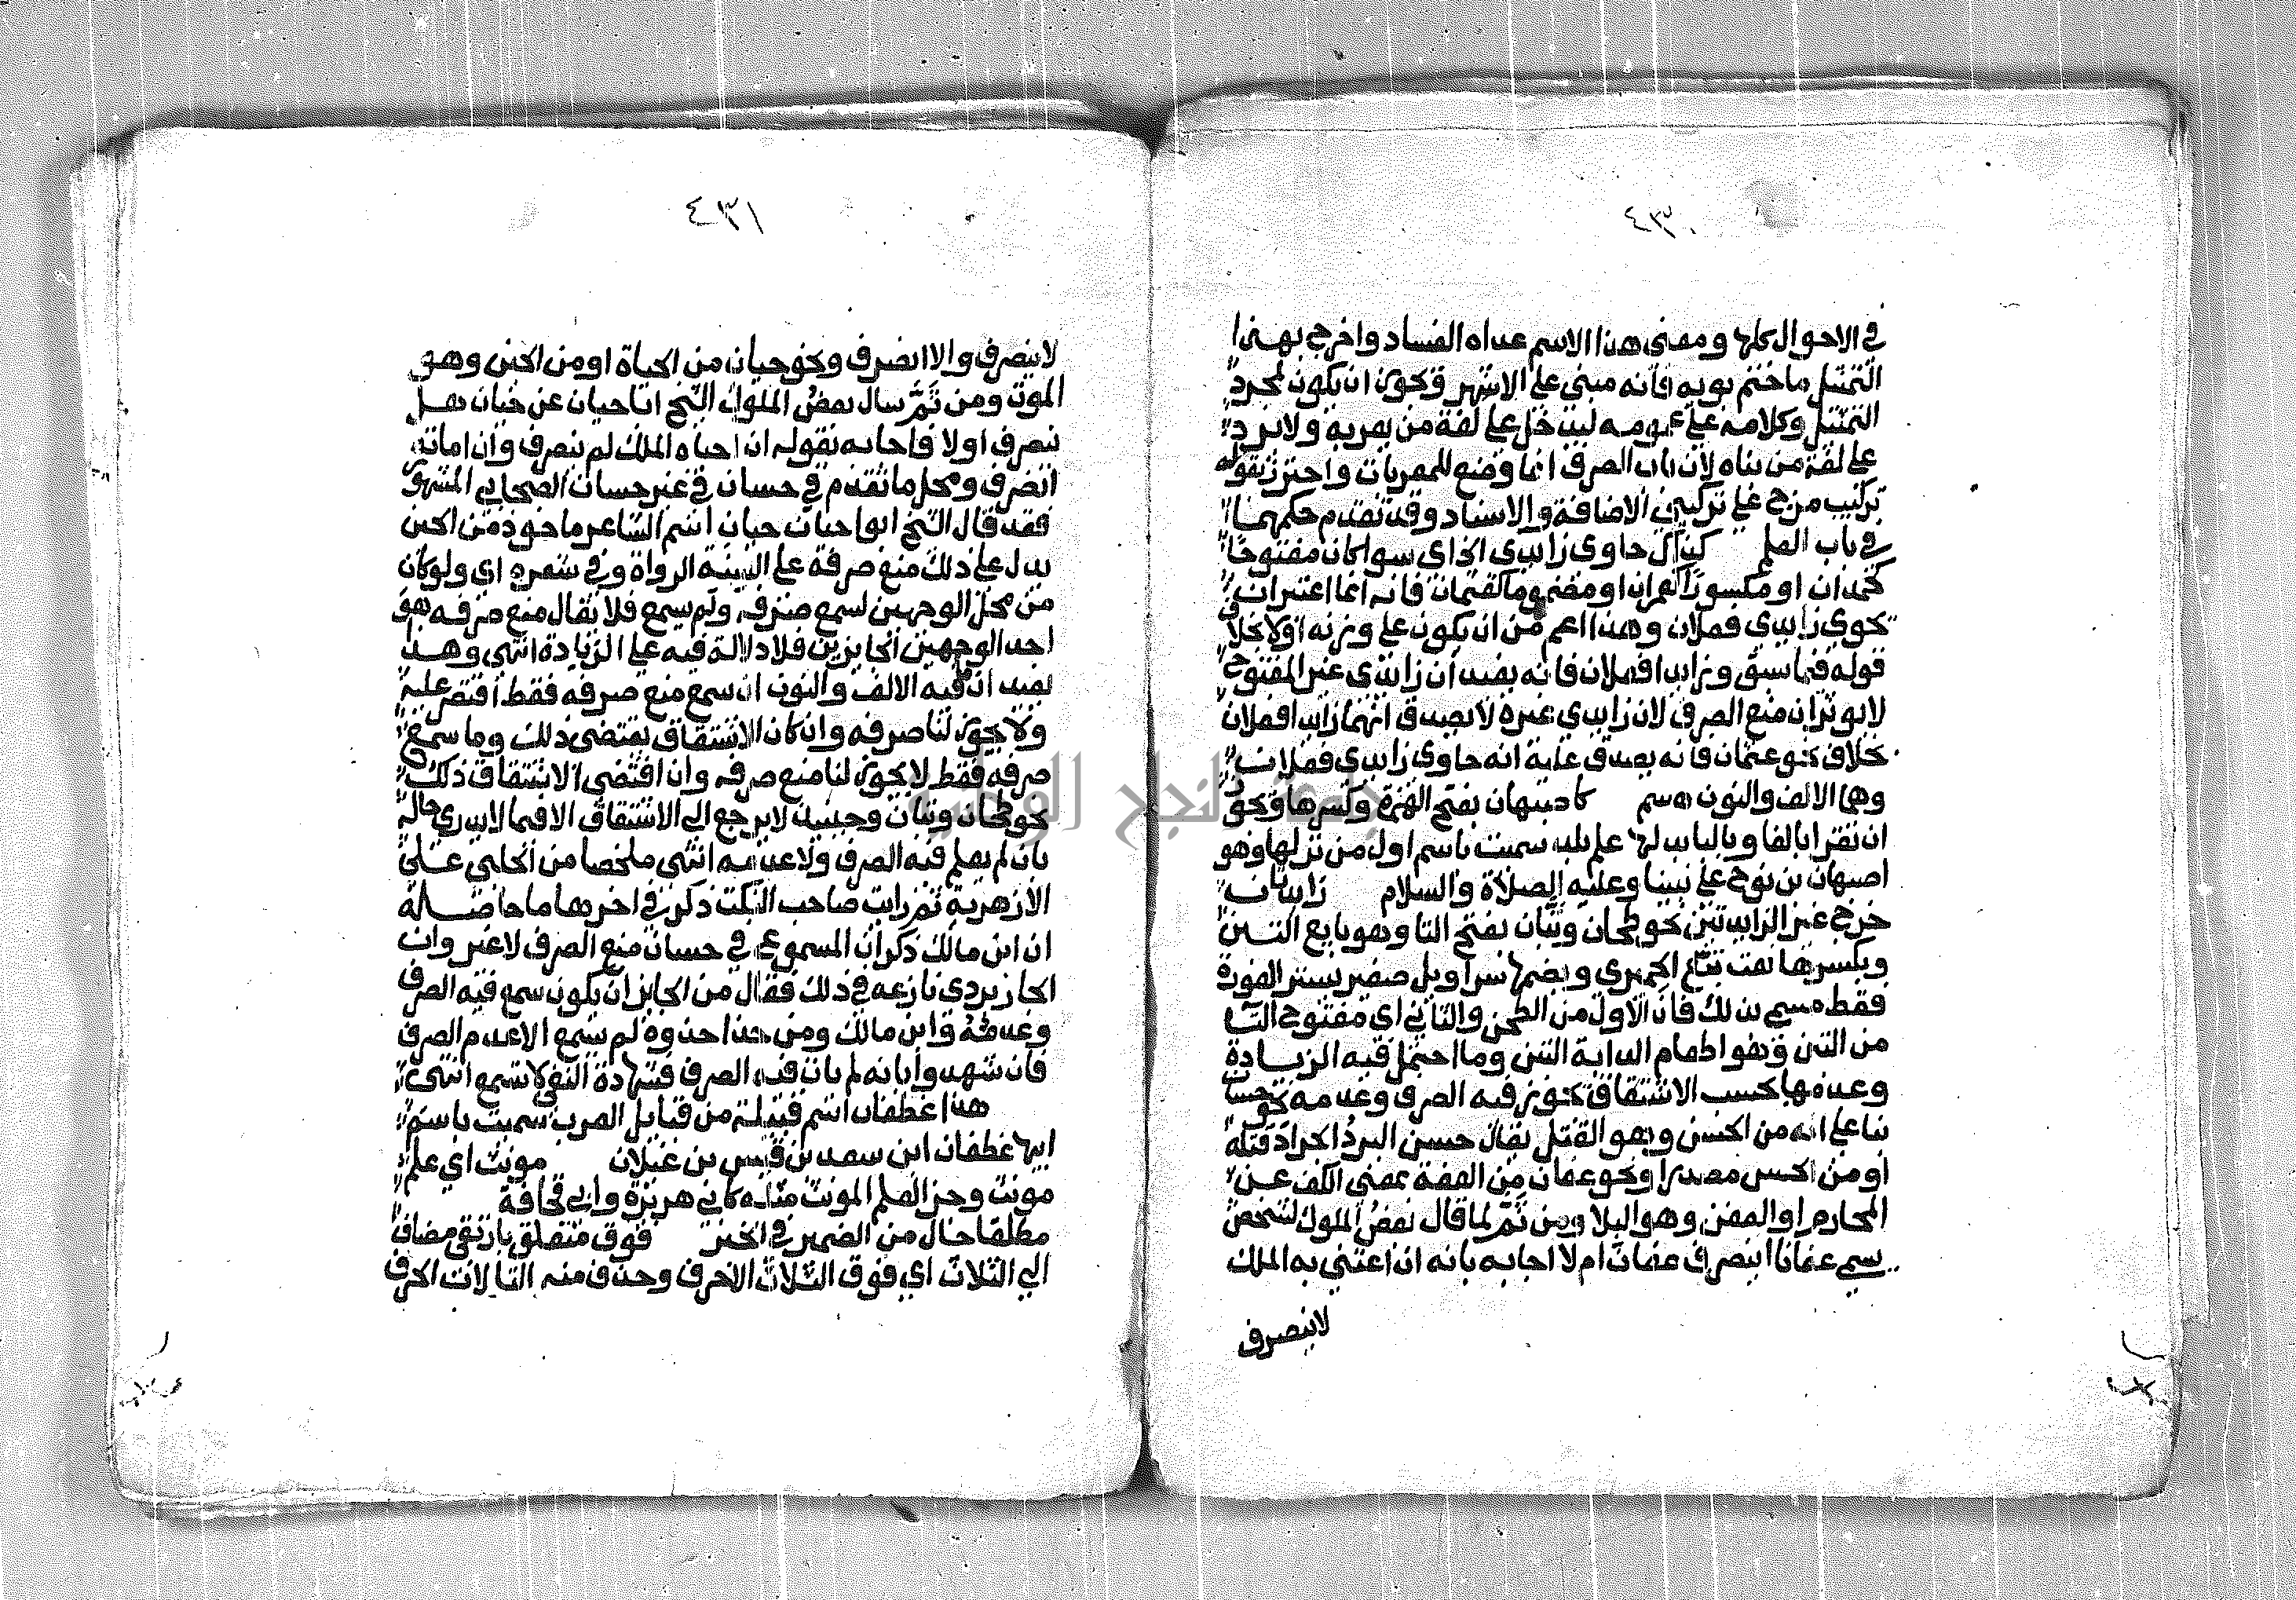 ٤٣٠
في الاحوال كلها ومعنى هذا الاسم عداه الفساد واخرج بهذا
التمثيل ما ختم بويه فانه مبنى على الاشهر ويجوز ان يكون لمجرد
التمثيل وكلامه على عمومه ليدخل على لغة من يعربه ولا يرد
على لغة من بناه لان باب الصرف انما وضع للمعربات واحترز بقوله
تركيب مزج على تركيبى الاضافة والاسناد وقد تقدم حكمهما
في باب العلم كذاك حاوى زايدى الخ اى سوا كان مفتوحا
كحمدان او مكسورا كعمران او مضموما كعثمان فانه انما اعتبران
يحوى زايدى فعلان وهذا اعم من ان يكون على وزنه اولا بخلاف
قوله فيما سبق وزايدا فعلان فانه يفيد ان زايدى غير المفتوح
لا يوثران منع الصرف لان زايدي غيره لا يصدق انهما زايدا فعلان
بخلاف نحو عثمان فانه يصدق عليه انه حاوى زايدى فعلان
وهما الالف والنون كاصبهان بفتح الهمزة وكسرها ويجوز
ان تقرا بالفا وبالبا بدلها علم بلد سميت باسم اول من نزلها وهو
اصبهان بن نوح على نبينا وعليه الصلاة والسلام زايدان
خرج غير الزايدتين نحو طحان وتبان بفتح التا وهو بايع التبن
وبكسرها نعت تبع الحميري وبضمها سراويل صغير يستر العورة
فقط مسمى بذلك فان الاول من الطحن والثاني اى مفتوح التا
من التبن وهو اطعام الدابة التبن وما احتمل فيه الزيادة
وعدمها بحسب الاشتقاق يجوز فيه الصرف وعدمه نحو حسان
بنا على انه من الحسن وهو القتل يقال حسن البرد الجراد قتله
او من الحسن مصدرا ونحو عفان من العفة بمعنى الكف عن
المحارم او العفن وهو البلا ومن ثم لما قال بعض الملوك لشخص
يسمى عفانا اينصرف عفان ام لا اجابه بانه ان اعتنى به الملك
لا ينصرف
٤٣١
لا ينصرف والا انصرف ونحو حيان من الحياة او من الحين وهو
الموت ومن ثم سال بعض الملوك الشيخ ابا حيان عن حيان هل
ينصرف اولا فاجابه بقوله ان احياه الملك لم ينصرف وان اماته
انصرف ومحل ما تقدم في حسان في غير حسان الصحابي المشهور
فقد قال الشيخ ابو احيان حيان اسم الشاعر ماخوذ من الحين
يدل على ذلك منع صرفه على السنة الرواة وفي شعره اى ولو كان
من محل الوجهين لسمع صرفه ولم يسمع فلا يقال منع صرفه هو
احد الوجهين الجايزين فلا دلالة فيه على الزيادة انتهى وهذا
يفيد ان ما فيه الالف والنون ان سمع منع صرفه فقط اقتصر عليه
ولا يجوز لنا صرفه وان كان الاشتقاق يقتضى ذلك وما سمع
صرفه فقط لا يجوز لنا منع صرفه وان اقتضى الاشتقاق ذلك
نحو طحان وتبان وحينيذ لا يرجع الى الاشتقاق الا فيما لا يدري حاله
بان لم يعلم فيه الصرف ولا عدمه انتهى ملخصا من الحلبي على
الازهرية ثم رايت صاحب النكت ذكر في اخرها ما حاصله
ان ابن مالك ذكر ان المسموع في حسان منع الصرف لا غير وان
الجاربردى نازعه في ذلك فقال من الجايز ان يكون سمع فيه الصرف
وعدمه وابن مالك ومن حذا حذوه لم يسمع الا عدم الصرف
فان شهدوا بانه لم يات فيه الصرف فشهادة النفى لا تسمع انتهى
هذا غطفان اسم قبيلة من قبايل العرب سميت باسم
ابيها غطفان ابن سعد بن قيس بن عيلان مونث اي علم
مونث وجز العلم المونث مثله كابي هريرة وابي قحافة
مطلقا حال من الضمير في الخبر فوق متعلق بارتقى مضاف
الى الثلاث اي فوق الثلاث الاحرف وحذف منه التا لان الحرف